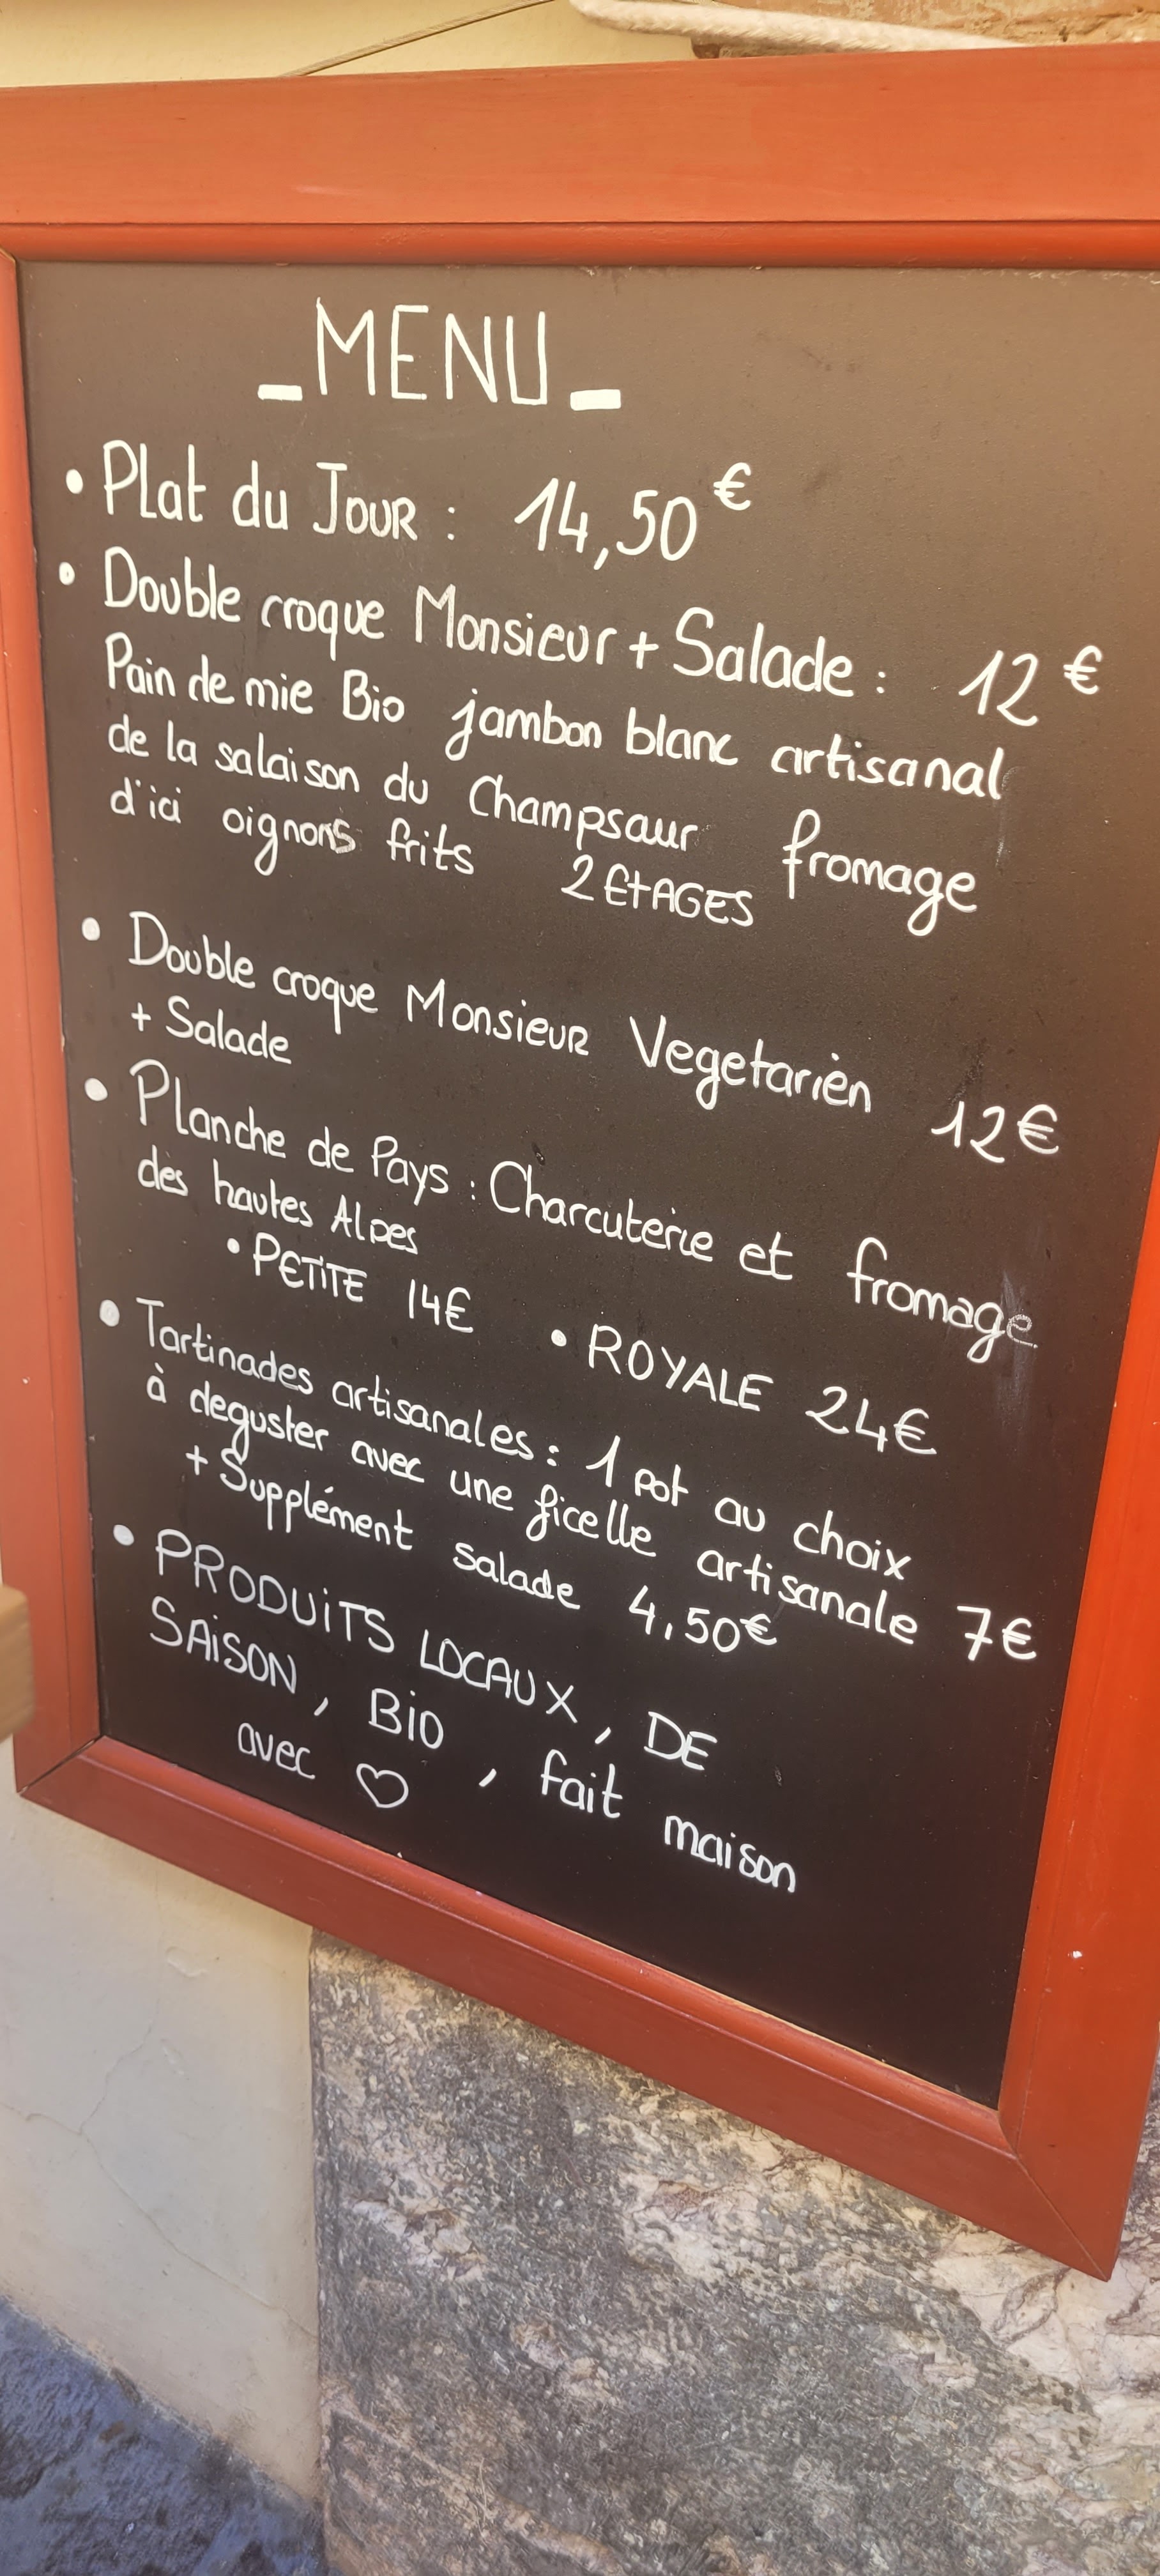 _MENU_
• Plat du Jour : 14,50€
• Double croque Monsieur + Salade : 12€
Pain de mie Bio jambon blanc artisanal
de la salaison du Champsaur fromage
d'ici oignons frits 2 ETAGES
• Double croque Monsieur Vegetarièn 12€
+ Salade
• Planche de Pays : Charcuterie et fromage
des hautes Alpes
• PETITE 14€ • ROYALE 24€
• Tartinades artisanales : 1 pot au choix
à deguster avec une ficelle artisanale 7€
+ Supplément salade 4,50€
• PRODUITS LOCAUX, DE
SAISON, BIO, fait maison
avec ♡